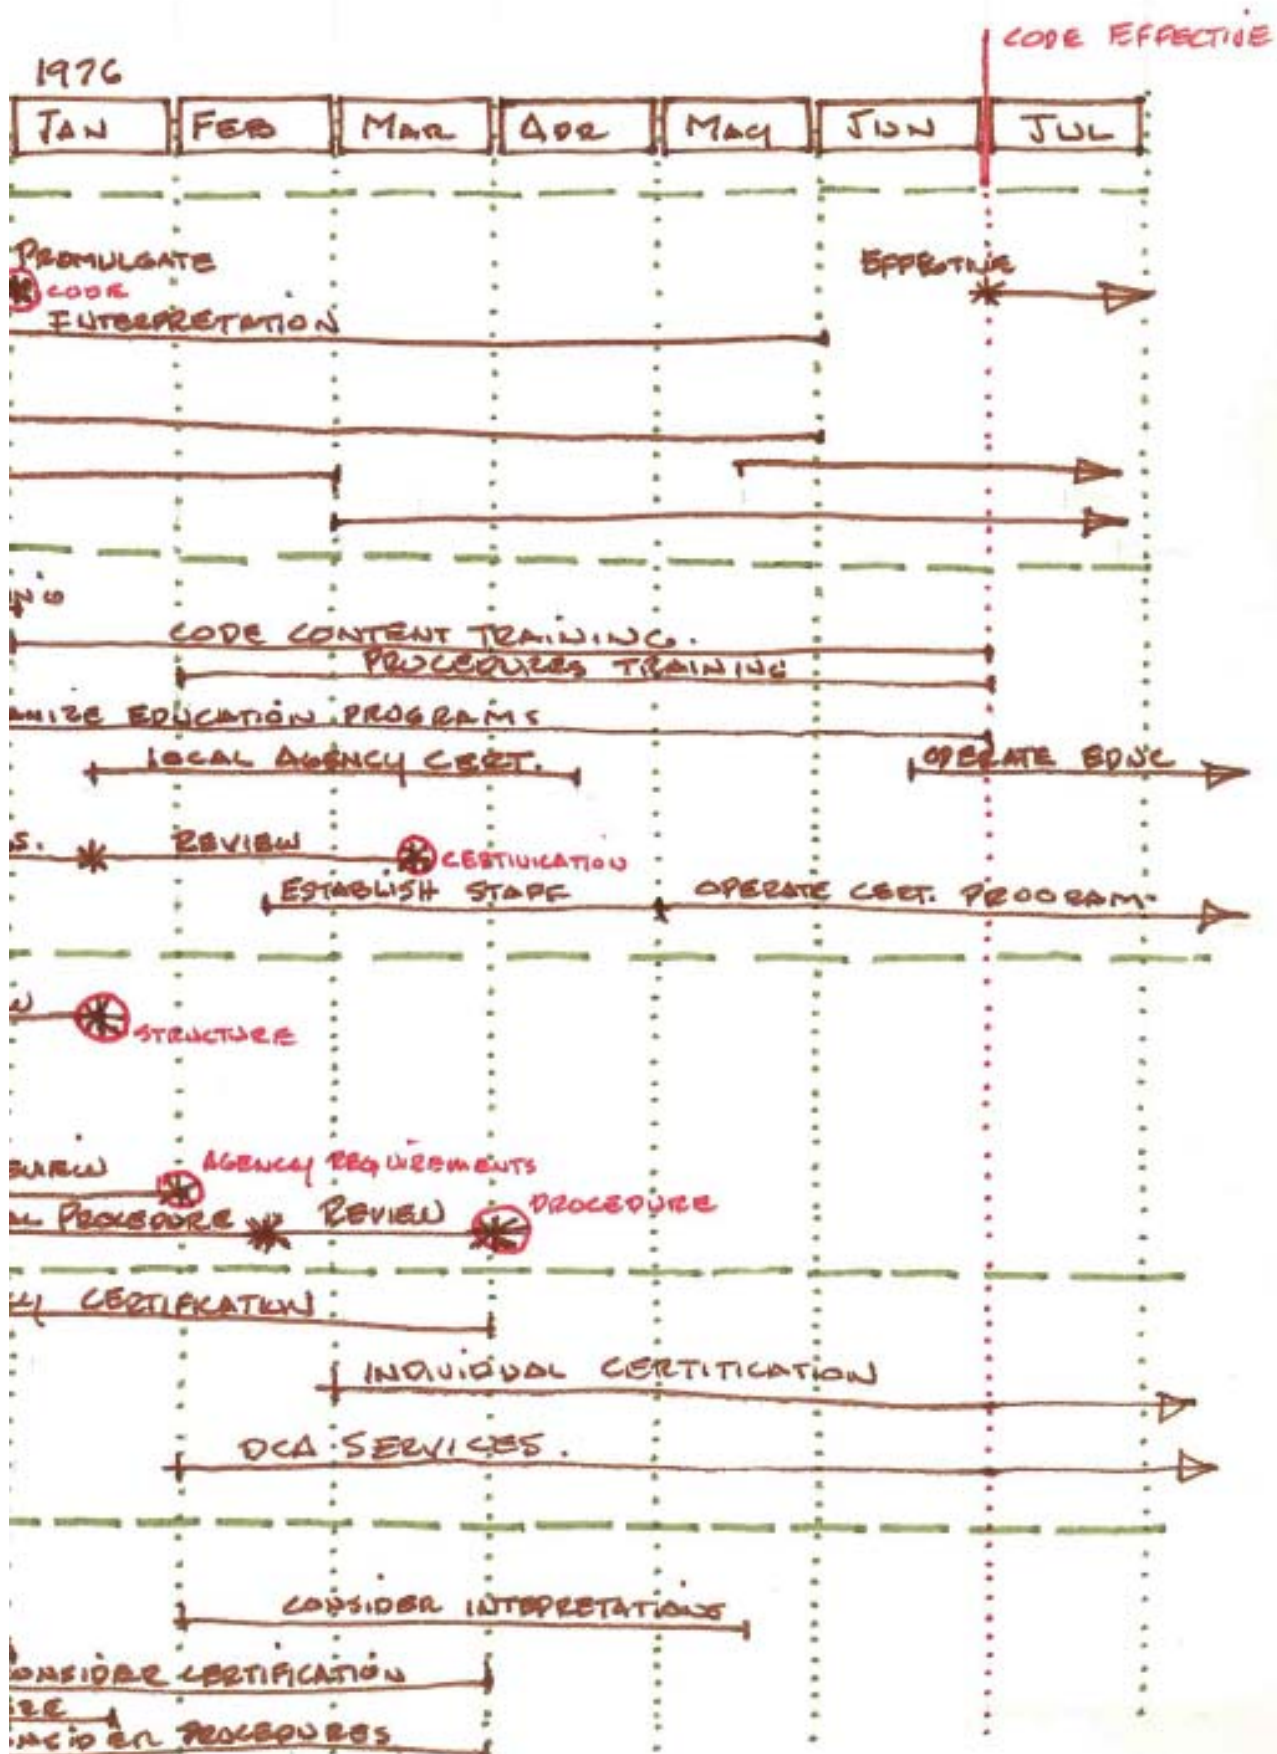 CODE EFFECTIVE
1976
JAN FEB MAR APR MAY JUN JUL
PROMULGATE
EFFECTIVE
CODE
INTERPRETATION
NG
CODE CONTENT TRAINING.
PROCEDURES TRAINING
ANIZE EDUCATION PROGRAMS
LOCAL AGENCY CERT.
OPERATE EDUC
S.
REVIEW
CERTIUICATION
ESTABLISH STAFF
OPERATE CERT. PROGRAM
STRUCTURE
AGENCY REQUIREMENTS
AL PROCEDURE
REVIEW
PROCEDURE
CERTIFICATION
INDIVIDUAL CERTITICATION
DCA SERVICES.
CONSIDER INTEPRETATIONS
ONSIDER CERTIFICATION
RE
NSIDER PROCEDURES